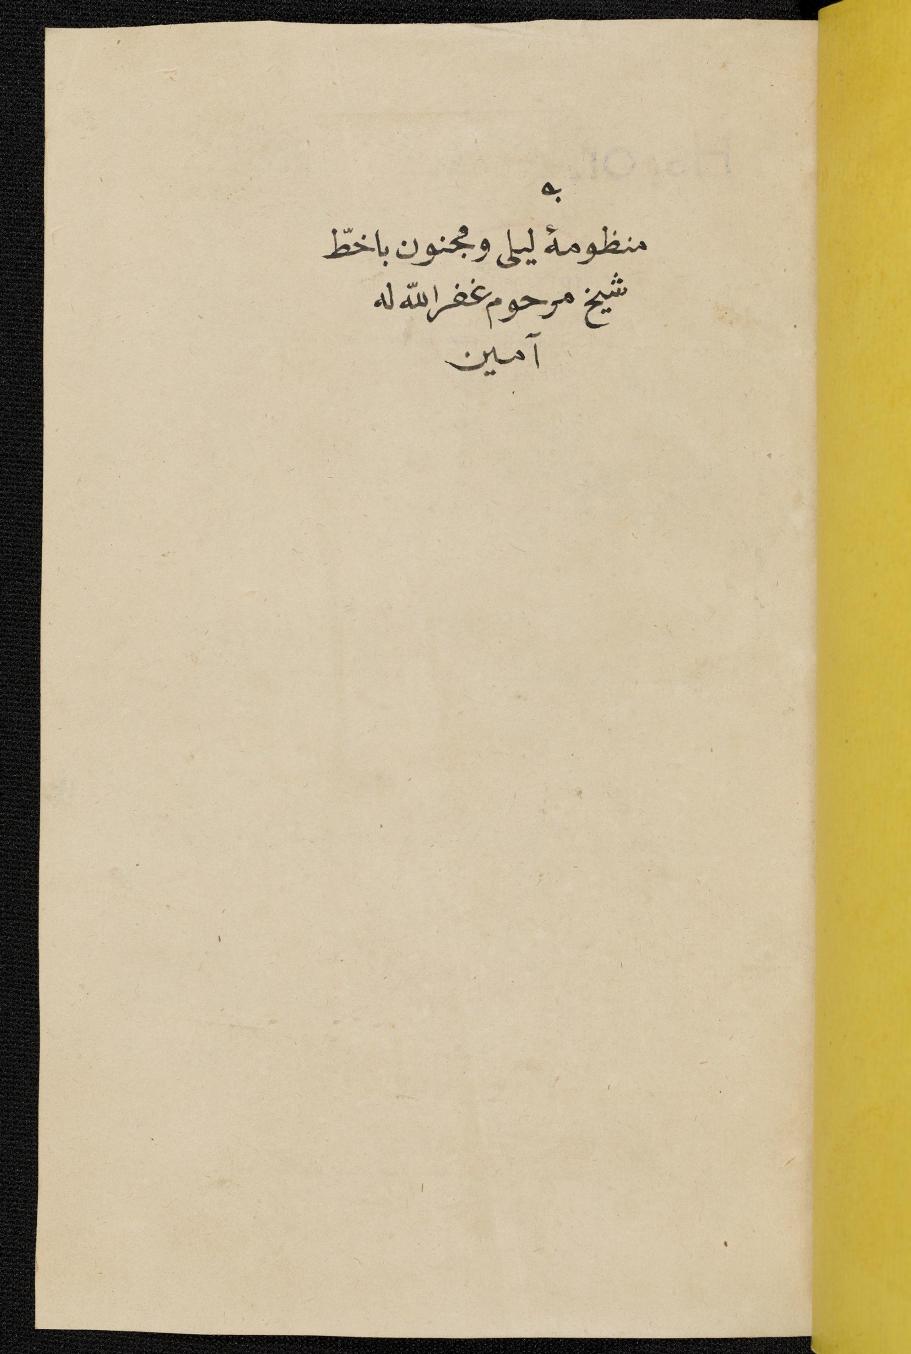 منظومهٔ ليلى ومجنون باخطّ
شيخ مرحوم غفر اللّه له
آمين